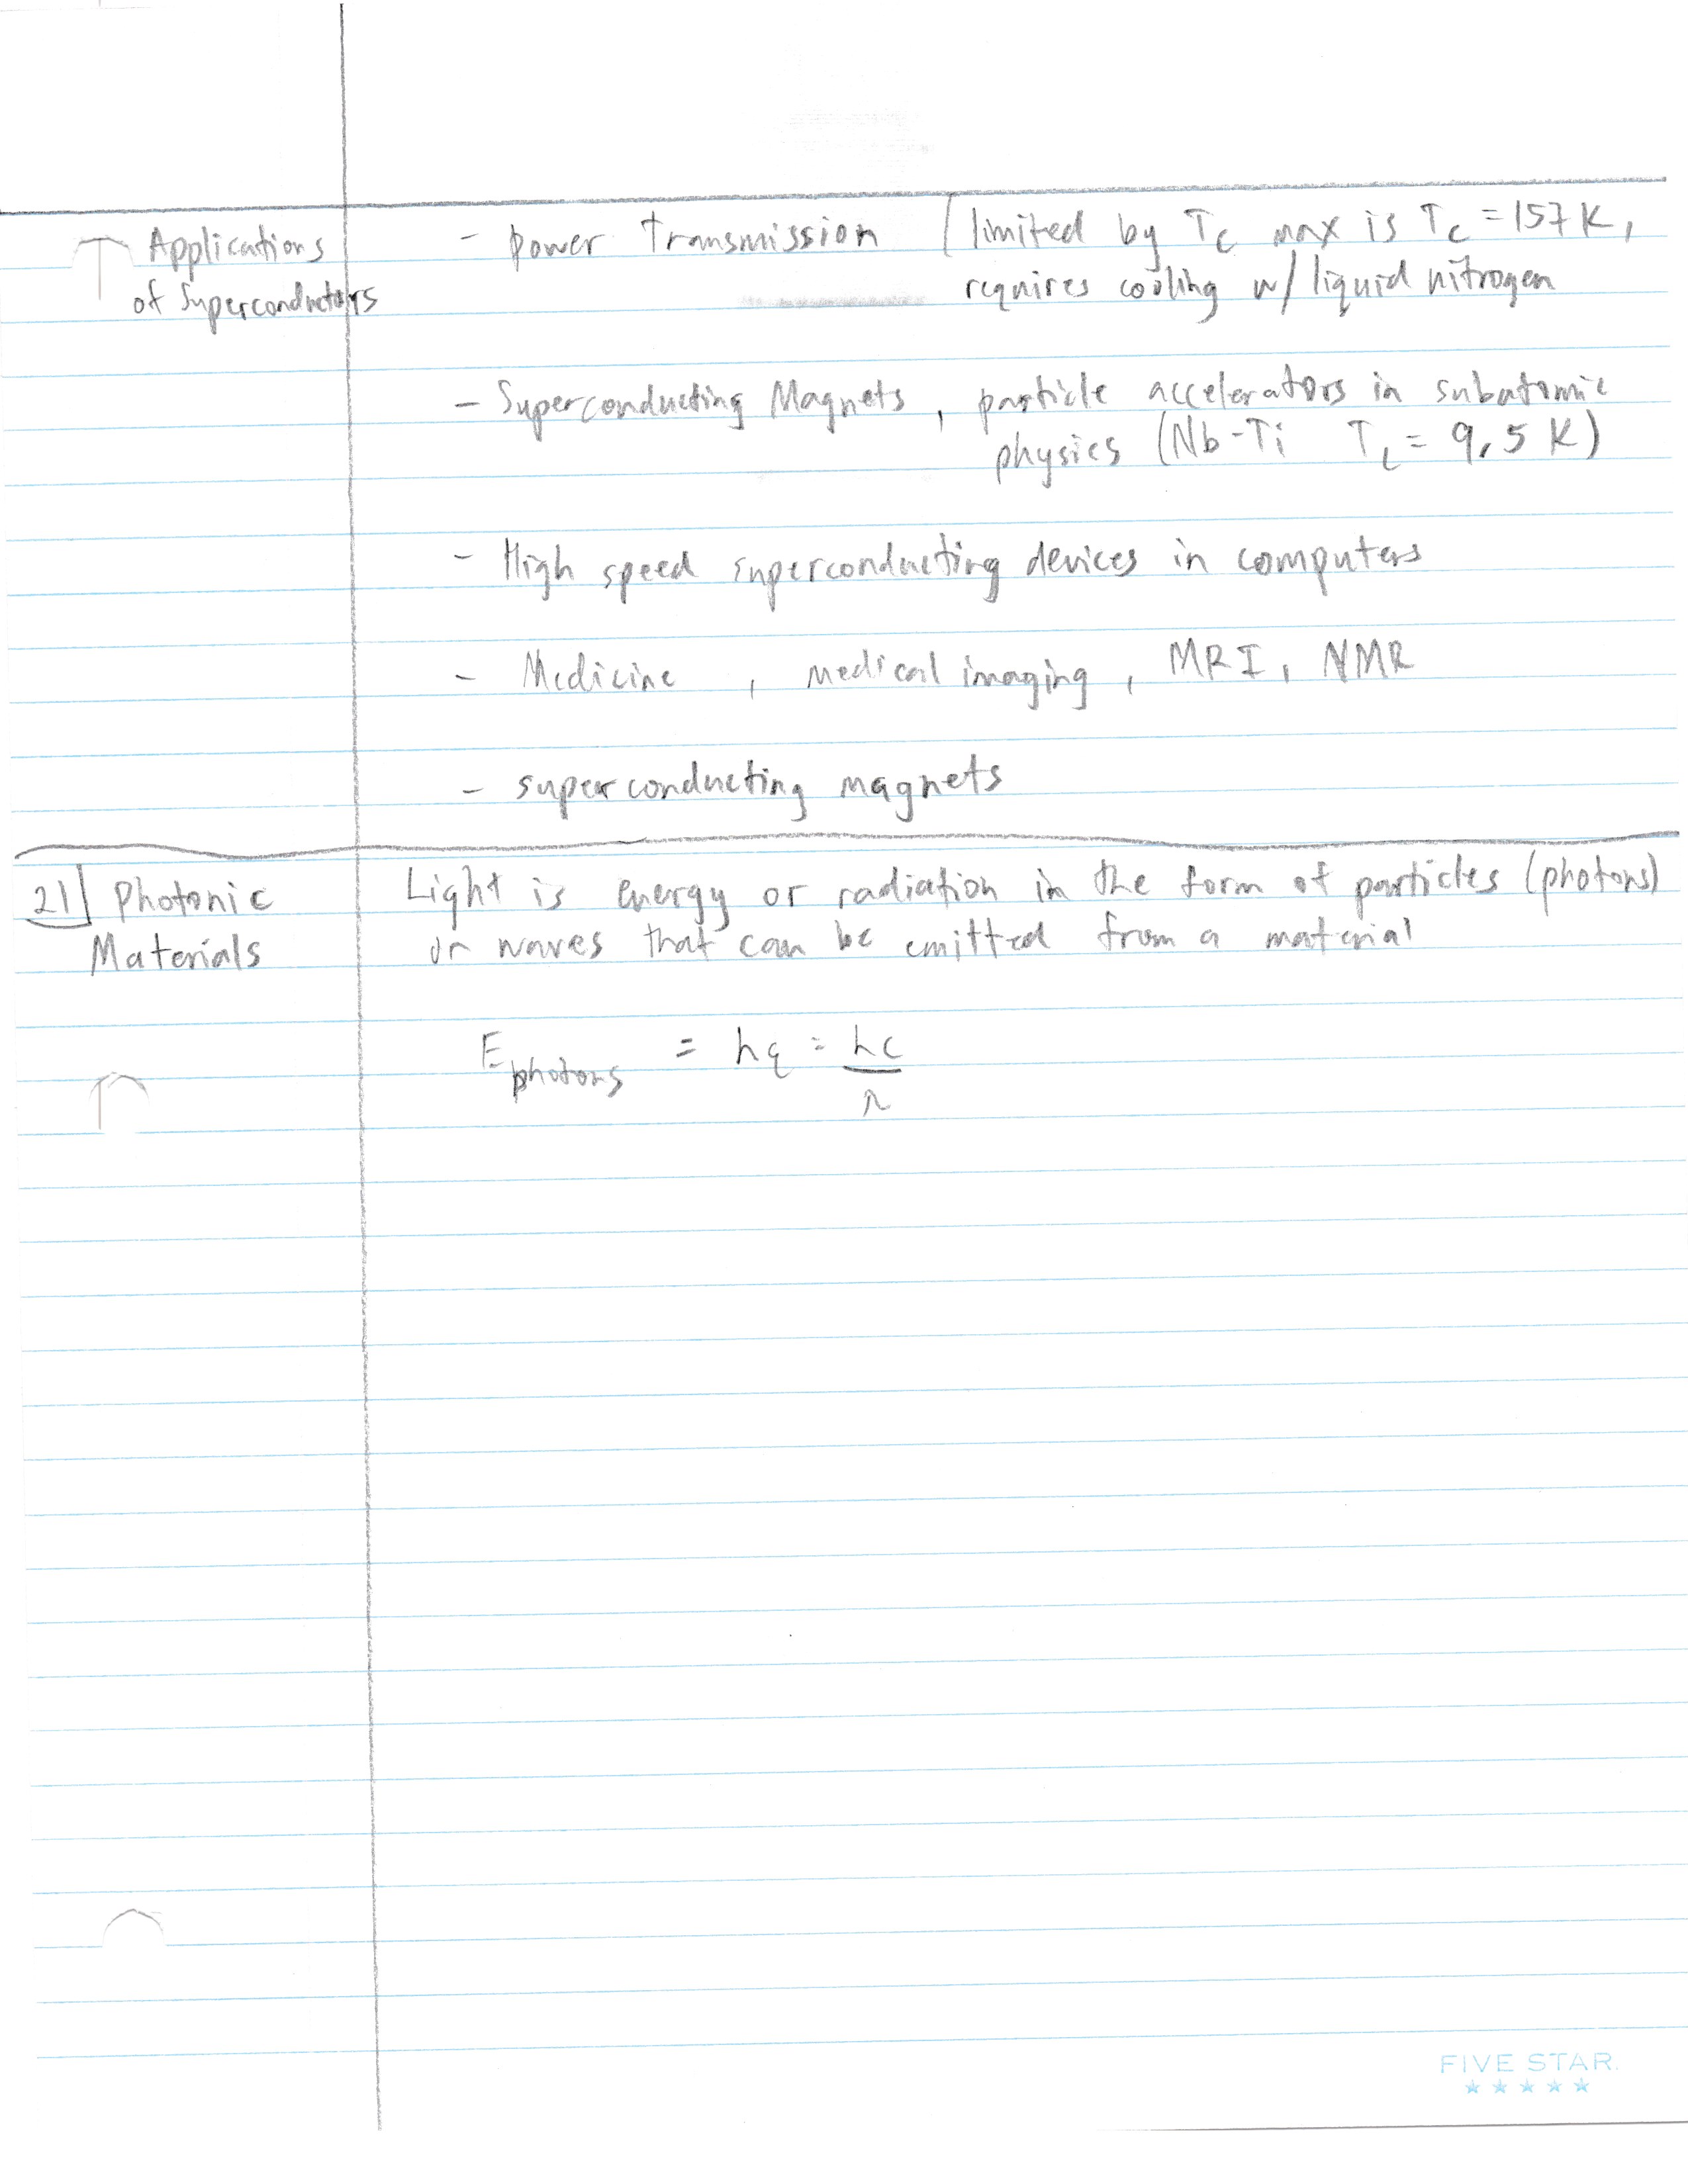 Applications
of Superconductors
- power transmission (limited by Tc max is Tc = 157 K,
requires cooling w/ liquid nitrogen
- Superconducting Magnets, particle accelerators in subatomic
physics (Nb-Ti Tc = 9.5 K)
- High speed superconducting devices in computers
- Medicine, medical imaging, MRI, NMR
- superconducting magnets
21 Photonic
Materials
Light is energy or radiation in the form of particles (photons)
or waves that can be emitted from a material
E photons = h = hc
λ
FIVE STAR.
★★★★★